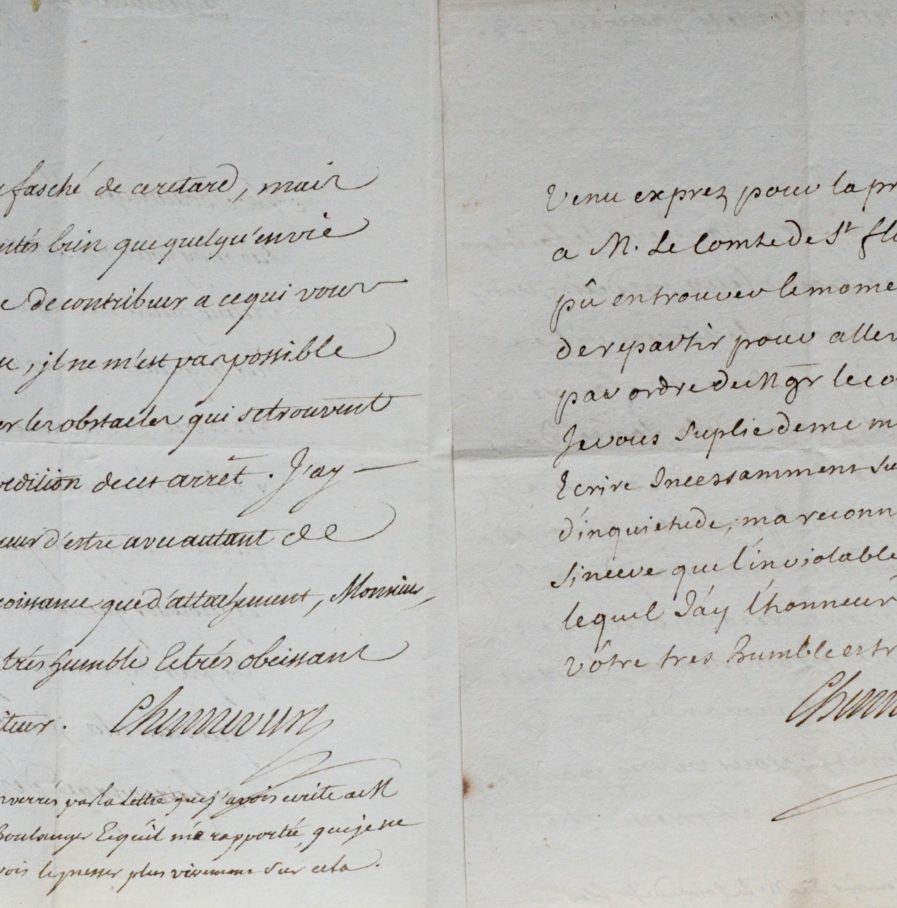 fasché de ce retard, mais
bien que quelqu'envie
e de contribuer a ce qui vous
, il ne m'est pas possible
er les obstacles qui se trouvent
dition de cet arrêt. J'ay
eur d'estre avec autant de
noissance que d'attachement, Monsieur,
très humble et très obeissant
iteur. Chennevieres
verrés par la Lettre que j'avois ecrite a M
Boulanger et qu'il m'a rapportée, que je ne
vois le presser plus vivement sur cela.
Venu exprez pour la pr
a M. Le Comte de St flo
pû en trouver le mome
de repartir pour aller
par ordre de Mgr le co
Je vous suplie de me m
Ecrire Incessamment su
d'inquietude, ma reconn
sincere que l'inviolable
lequel J'ay l'honneur
Vôtre tres humble et tr
Chenn